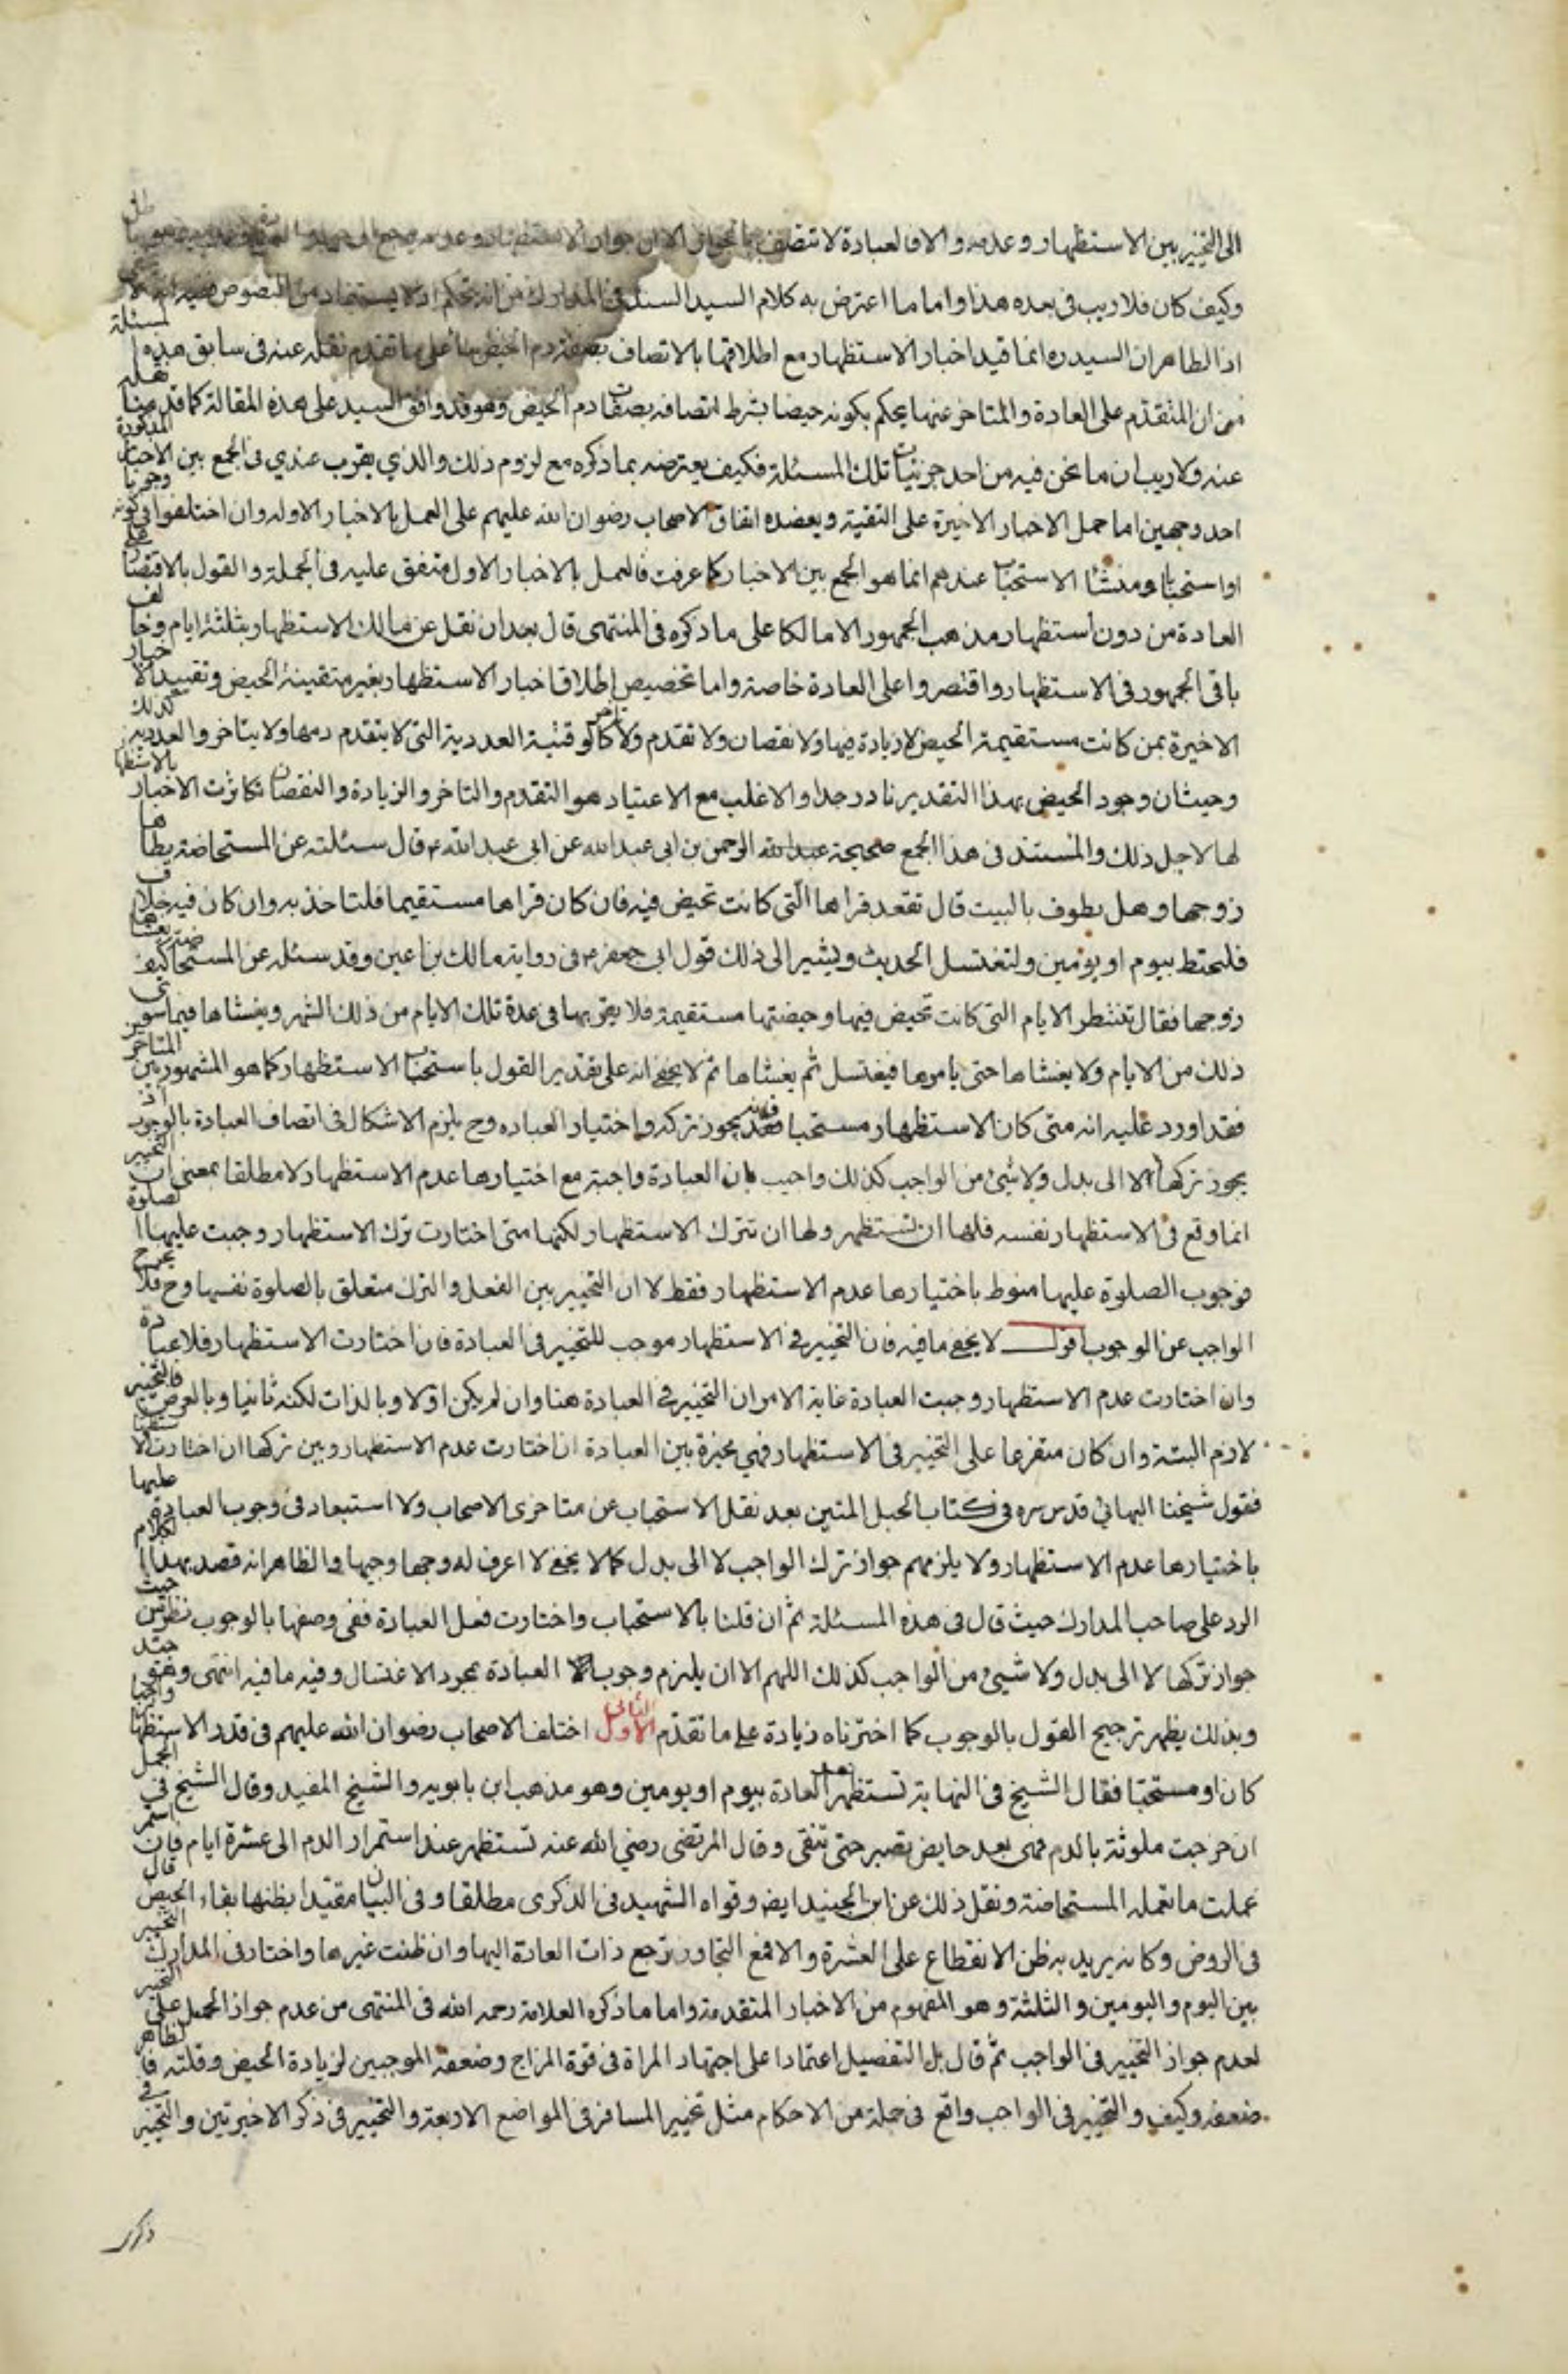 الى التخيير بين الاستظهار وعدمه والا فالعبادة لا تتصف بالجواز الا ان جواز الاستظهار وعدمه مرجع
وكيف كان فلا ريب فى بعده هذا واما ما اعترض به كلام السيد السند فى المدارك من انه تحكم اذ لا يستفاد من النصوص
اذ الظاهر ان السيد ره انما قيد اخبار الاستظهار مع اطلاقها بالاتصاف بصفة دم الحيض بناء على ما تقدم نقله عنه فى سابق هذه المسئلة
من ان المتقدم على العادة والمتاخر عنها يحكم بكونه حيضا بشرط اتصافه بصفات دم الحيض وهو قد وافق السيد على هذه المقالة كما قدمنا نقله
عنه ولا ريب ان ما نحن فيه من احد جزئيات تلك المسئلة فكيف يعترضه بما ذكره مع لزوم ذلك والذي يقرب عندي فى الجمع بين الاخبار المذكورة
احد وجهين اما حمل الاخبار الاخيرة على التقية ويعضده اتفاق الاصحاب رضوان الله عليهم على العمل بالاخبار الاوله وان اختلفوا فى كونه وجوبا
او استحبابا ومنشأ الاستحباب عندهم انما هو الجمع بين الاخبار كما عرفت فالعمل بالاخبار الاول متفق عليه فى الجملة والقول بالاقتصار على
العادة من دون استظهار مذهب الجمهور الا مالكا على ما ذكره فى المنتهى قال بعد ان نقل عن مالك الاستظهار بثلثة ايام وخالف
باقى الجمهور فى الاستظهار واقتصروا على العادة خاصة واما تخصيص اطلاق اخبار الاستظهار بغير متقينة الحيض وتقييد الاخبار
الاخيرة بمن كانت مستقيمة الحيض لا زيادة فيها ولا نقصان ولا تقدم ولا تاخر كالوقتية العددية التى لا يتقدم دمها ولا يتاخر والعددية كذلك
وحيث ان وجود الحيض بهذا التقدير نادر جدا والاغلب مع الاعتياد هو التقدم والتاخر والزيادة والنقصان تكاثرت الاخبار بالاستظهار
لها لاجل ذلك والمستند فى هذا الجمع صحيحة عبد الله الرحمن بن ابى عبد الله عن ابى عبد الله ع قال سئلته عن المستحاضة يطاها
زوجها وهل يطوف بالبيت قال تقعد قراها الّتى كانت تحيض فيه فان كان قراها مستقيما فلتاخذ به وان كان فيه خلاف
فلتحتط بيوم او يومين ولتغتسل الحديث ويشير الى ذلك قول ابى جعفر ع فى رواية مالك بن اعين وقد سئله عن المستحاضة كيف يغشاها
زوجها فقال تنتظر الايام التى كانت تحيض فيها وحيضتها مستقيمة فلا يقربها فى عدة تلك الايام من ذلك الشهر ويغشاها فيما سوى
ذلك من الايام ولا يغشاها حتى يامرها فيغتسل ثم يغشاها ثم لا يخفى انه على تقدير القول باستحباب الاستظهار كما هو المشهور بين المتاخرين
فقد اورد عليه انه متى كان الاستظهار مستحبا فقد يجوز تركه واختيار العباده وح يلزم الاشكال فى اتصاف العبادة بالوجوب اذ
يجوز تركها لا الى بدل ولا شئ من الواجب كذلك واجيب بان العبادة واجبة مع اختيارها عدم الاستظهار لا مطلقا بمعنى ان التخيير
انما وقع فى الاستظهار نفسه فلها ان تستظهر ولها ان تترك الاستظهار لكنها متى اختارت ترك الاستظهار وجبت عليها الصلوة
فوجوب الصلوة عليها منوط باختيارها عدم الاستظهار فقط لا ان التخيير بين الفعل والترك متعلق بالصلوة نفسها وح فلا يخرج
الواجب عن الوجوب اقول لا يخفى ما فيه فان التخيير فى الاستظهار موجب للتخيير فى العبادة فان اختارت الاستظهار فلا عبادة
وان اختارت عدم الاستظهار وجبت العبادة غاية الامر ان التخيير فى العبادة هنا وان لم يكن اوّلا وبالذات لكنه ثانيا وبالعرض فالتخيير
لازم البتة وان كان متفرعا على التخيير فى الاستظهار فهي مخيرة بين العبادة ان اختارت عدم الاستظهار وبين تركها ان اختارت الاستظهار
فقول شيخنا البهائى قدس سره فى كتاب الحبل المتين بعد نقل الاستحباب عن متاخرى الاصحاب ولا استبعاد فى وجوب العبادة عليها
باختيارها عدم الاستظهار ولا يلزمهم جواز ترك الواجب لا الى بدل كما لا يخفى لا اعرف له وجها وجيها والظاهر انه قصد بهذا الكلام
الرد على صاحب المدارك حيث قال فى هذه المسئلة ثم ان قلنا بالاستحباب واختارت فعل العبادة ففى وصفها بالوجوب نظر من حيث
جواز تركها لا الى بدل ولا شيئ من الواجب كذلك اللهم الا ان يلتزم وجوب العبادة بمجرد الاغتسال وفيه ما فيه انتهى وهو جيّد
وبذلك يظهر ترجيح القول بالوجوب كما اخترناه زيادة على ما تقدّم الاول الثانى اختلف الاصحاب رضوان الله عليهم فى قدر الاستظهار واجبا
كان او مستحبّا فقال الشيخ فى النهاية تستظهر بعد العادة بيوم او يومين وهو مذهب ابن بابويه والشيخ المفيد وقال الشيخ فى الجمل
ان خرجت ملوثة بالدم فهى بعد حايض تصبر حتى تنقى وقال المرتضى رضي الله عنه تستظهر عند استمرار الدم الى عشرة ايام فان استمر
عملت ما تعمله المستحاضة ونقل ذلك عن ابن الجنيد ايض وقواه الشهيد فى الذكرى مطلقا وفى البيان مقيّدا بظنها بقاء الحيض قال
فى الروض وكانه يريد به ظن الانقطاع على العشرة والا فمع التجاوز ترجع ذات العادة اليها وان ظنت غيرها واختار فى المدارك التخيير
بين اليوم واليومين والثلثة وهو المفهوم من الاخبار المتقدمة واما ما ذكره العلامة رحمه الله فى المنتهى من عدم جواز الحمل على التخيير
لعدم جواز التخيير فى الواجب ثم قال بل التفصيل اعتمادا على اجتهاد المراة فى قوة المزاج وضعفه الموجبين لزيادة الحيض وقلته فالظاهر
ضعفه وكيف والتخيير فى الواجب واقع فى جملة من الاحكام مثل تخيير المسافر فى المواضع الاربعة والتخيير فى ذكر الاخيرتين والتخيير فى
ذكر